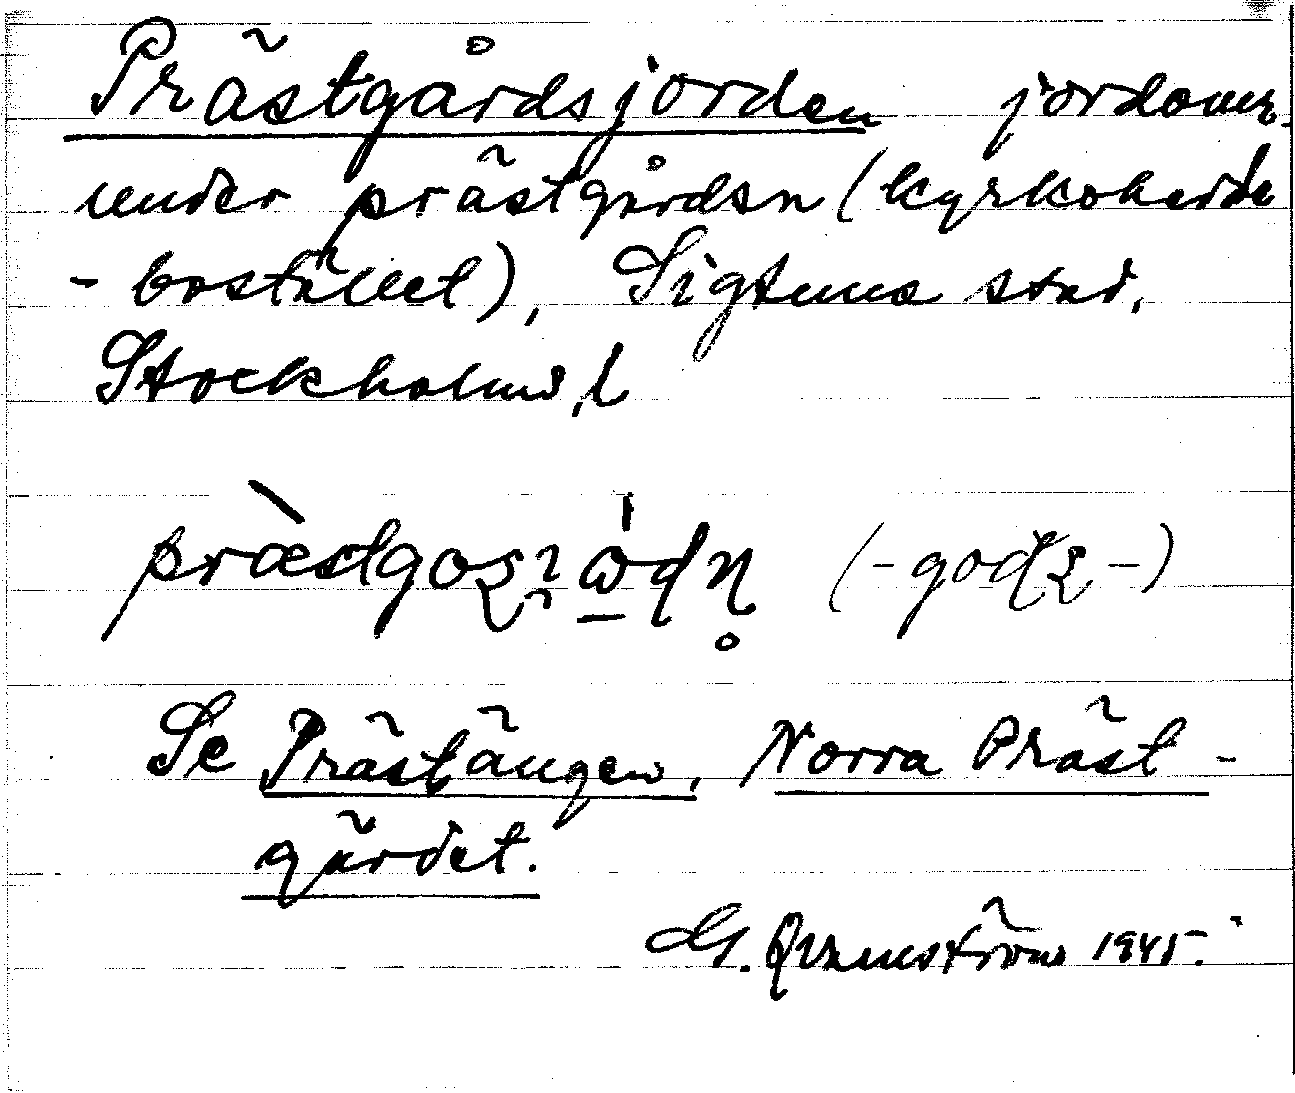 Prästgårdsjorden jordomr.
under prästgården (kyrkoherde
- bostället), Sigtuna stad,
Stockholms l
Se Prästängen, Norra Präst -
gärdet.
G. 1945.